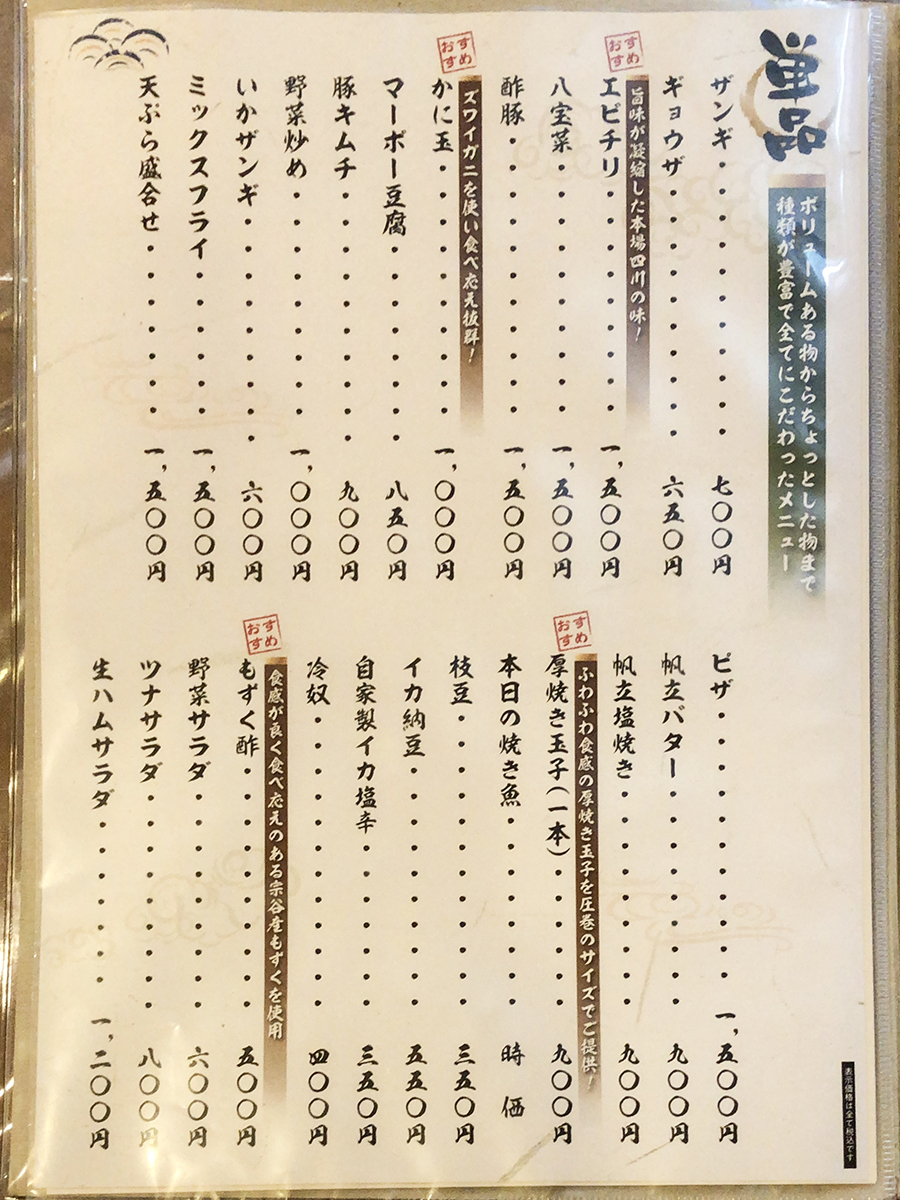 単品
ボリュームある物からちょっとした物まで
種類が豊富で全てにこだわったメニュー
ザンギ・・・・・・・・・・・七〇〇円
ギョウザ・・・・・・・・・・六五〇円
おすすめ
旨味が凝縮した本場四川の味!
エビチリ・・・・・・・・・一,五〇〇円
八宝菜・・・・・・・・・・一,五〇〇円
酢豚・・・・・・・・・・・一,五〇〇円
おすすめ
ズワイガニを使い食べ応え抜群!
かに玉・・・・・・・・・・一,〇〇〇円
マーボー豆腐・・・・・・・・八五〇円
豚キムチ・・・・・・・・・・九〇〇円
野菜炒め・・・・・・・・・一,〇〇〇円
いかザンギ・・・・・・・・・六〇〇円
ミックスフライ・・・・・・一,五〇〇円
天ぷら盛合せ・・・・・・・一,五〇〇円
ピザ・・・・・・・・・・・一,五〇〇円
帆立バター・・・・・・・・・九〇〇円
帆立塩焼き・・・・・・・・・九〇〇円
おすすめ
ふわふわ食感の厚焼き玉子を圧巻のサイズでご提供!
厚焼き玉子(一本)・・・・・・九〇〇円
本日の焼き魚・・・・・・・・時価
枝豆・・・・・・・・・・・・三五〇円
イカ納豆・・・・・・・・・・五五〇円
自家製イカ塩辛・・・・・・・三五〇円
冷奴・・・・・・・・・・・・四〇〇円
おすすめ
食感が良く食べ応えのある宗谷産もずくを使用
もずく酢・・・・・・・・・・五〇〇円
野菜サラダ・・・・・・・・・六〇〇円
ツナサラダ・・・・・・・・・八〇〇円
生ハムサラダ・・・・・・・一,二〇〇円
表示価格は全て税込です